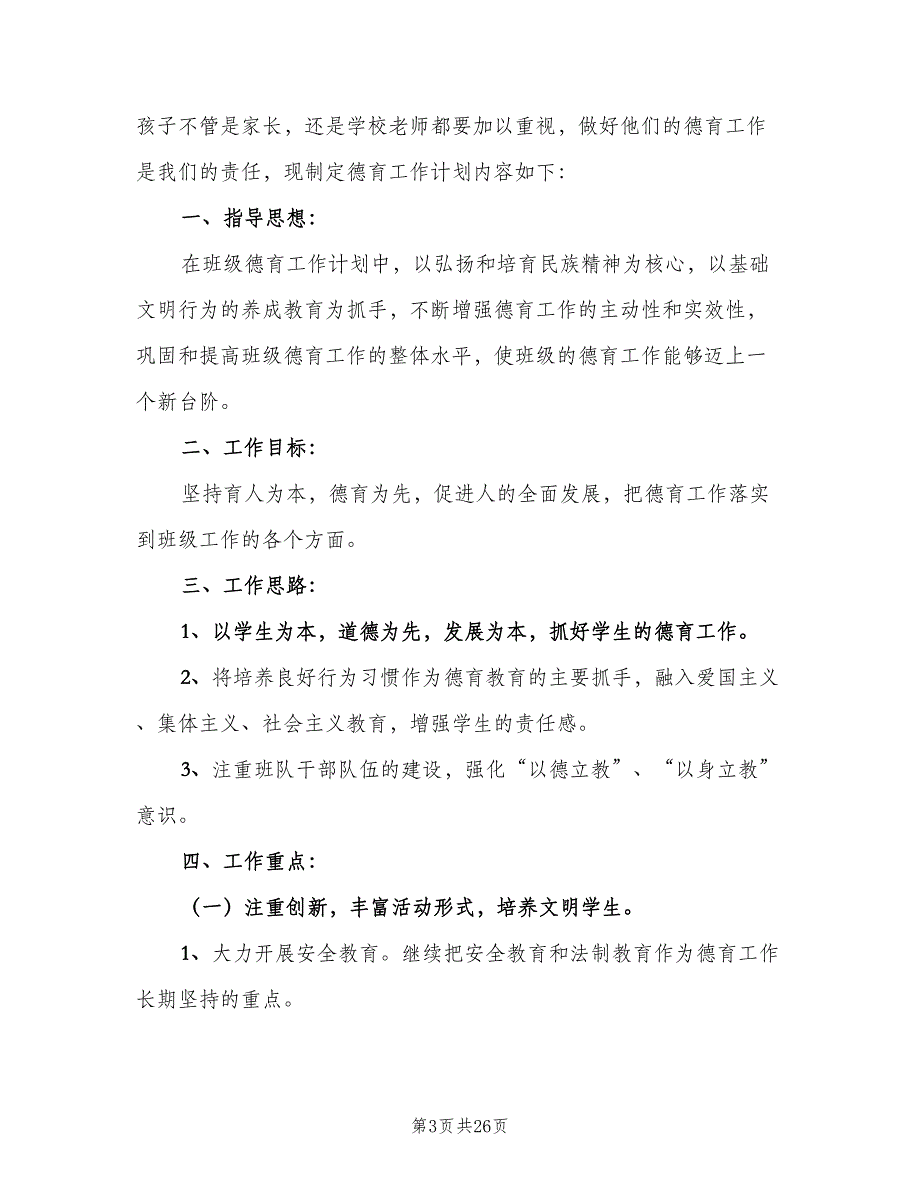 孩子不管是家长，还是学校老师都要加以重视，做好他们的德育工作
是我们的责任，现制定德育工作计划内容如下：
一、指导思想：
在班级德育工作计划中，以弘扬和培育民族精神为核心，以基础
文明行为的养成教育为抓手，不断增强德育工作的主动性和实效性，
巩固和提高班级德育工作的整体水平，使班级的德育工作能够迈上一
个新台阶。
二、工作目标：
坚持育人为本，德育为先，促进人的全面发展，把德育工作落实
到班级工作的各个方面。
三、工作思路：
1、以学生为本，道德为先，发展为本，抓好学生的德育工作。
2、将培养良好行为习惯作为德育教育的主要抓手，融入爱国主义
、集体主义、社会主义教育，增强学生的责任感。
3、注重班队干部队伍的建设，强化“以德立教”、“以身立教”
意识。
四、工作重点：
（一）注重创新，丰富活动形式，培养文明学生。
1、大力开展安全教育。继续把安全教育和法制教育作为德育工作
长期坚持的重点。
第3页共26页